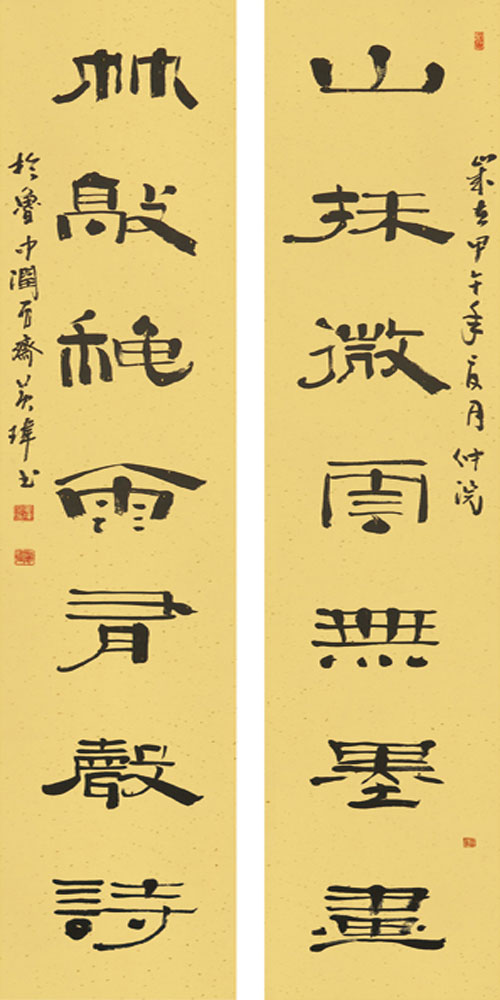 山抹微雲無墨畫
歲在甲午年夏月仲浣
林敲穐雨有聲詩
於魯中潤石齋瑋书